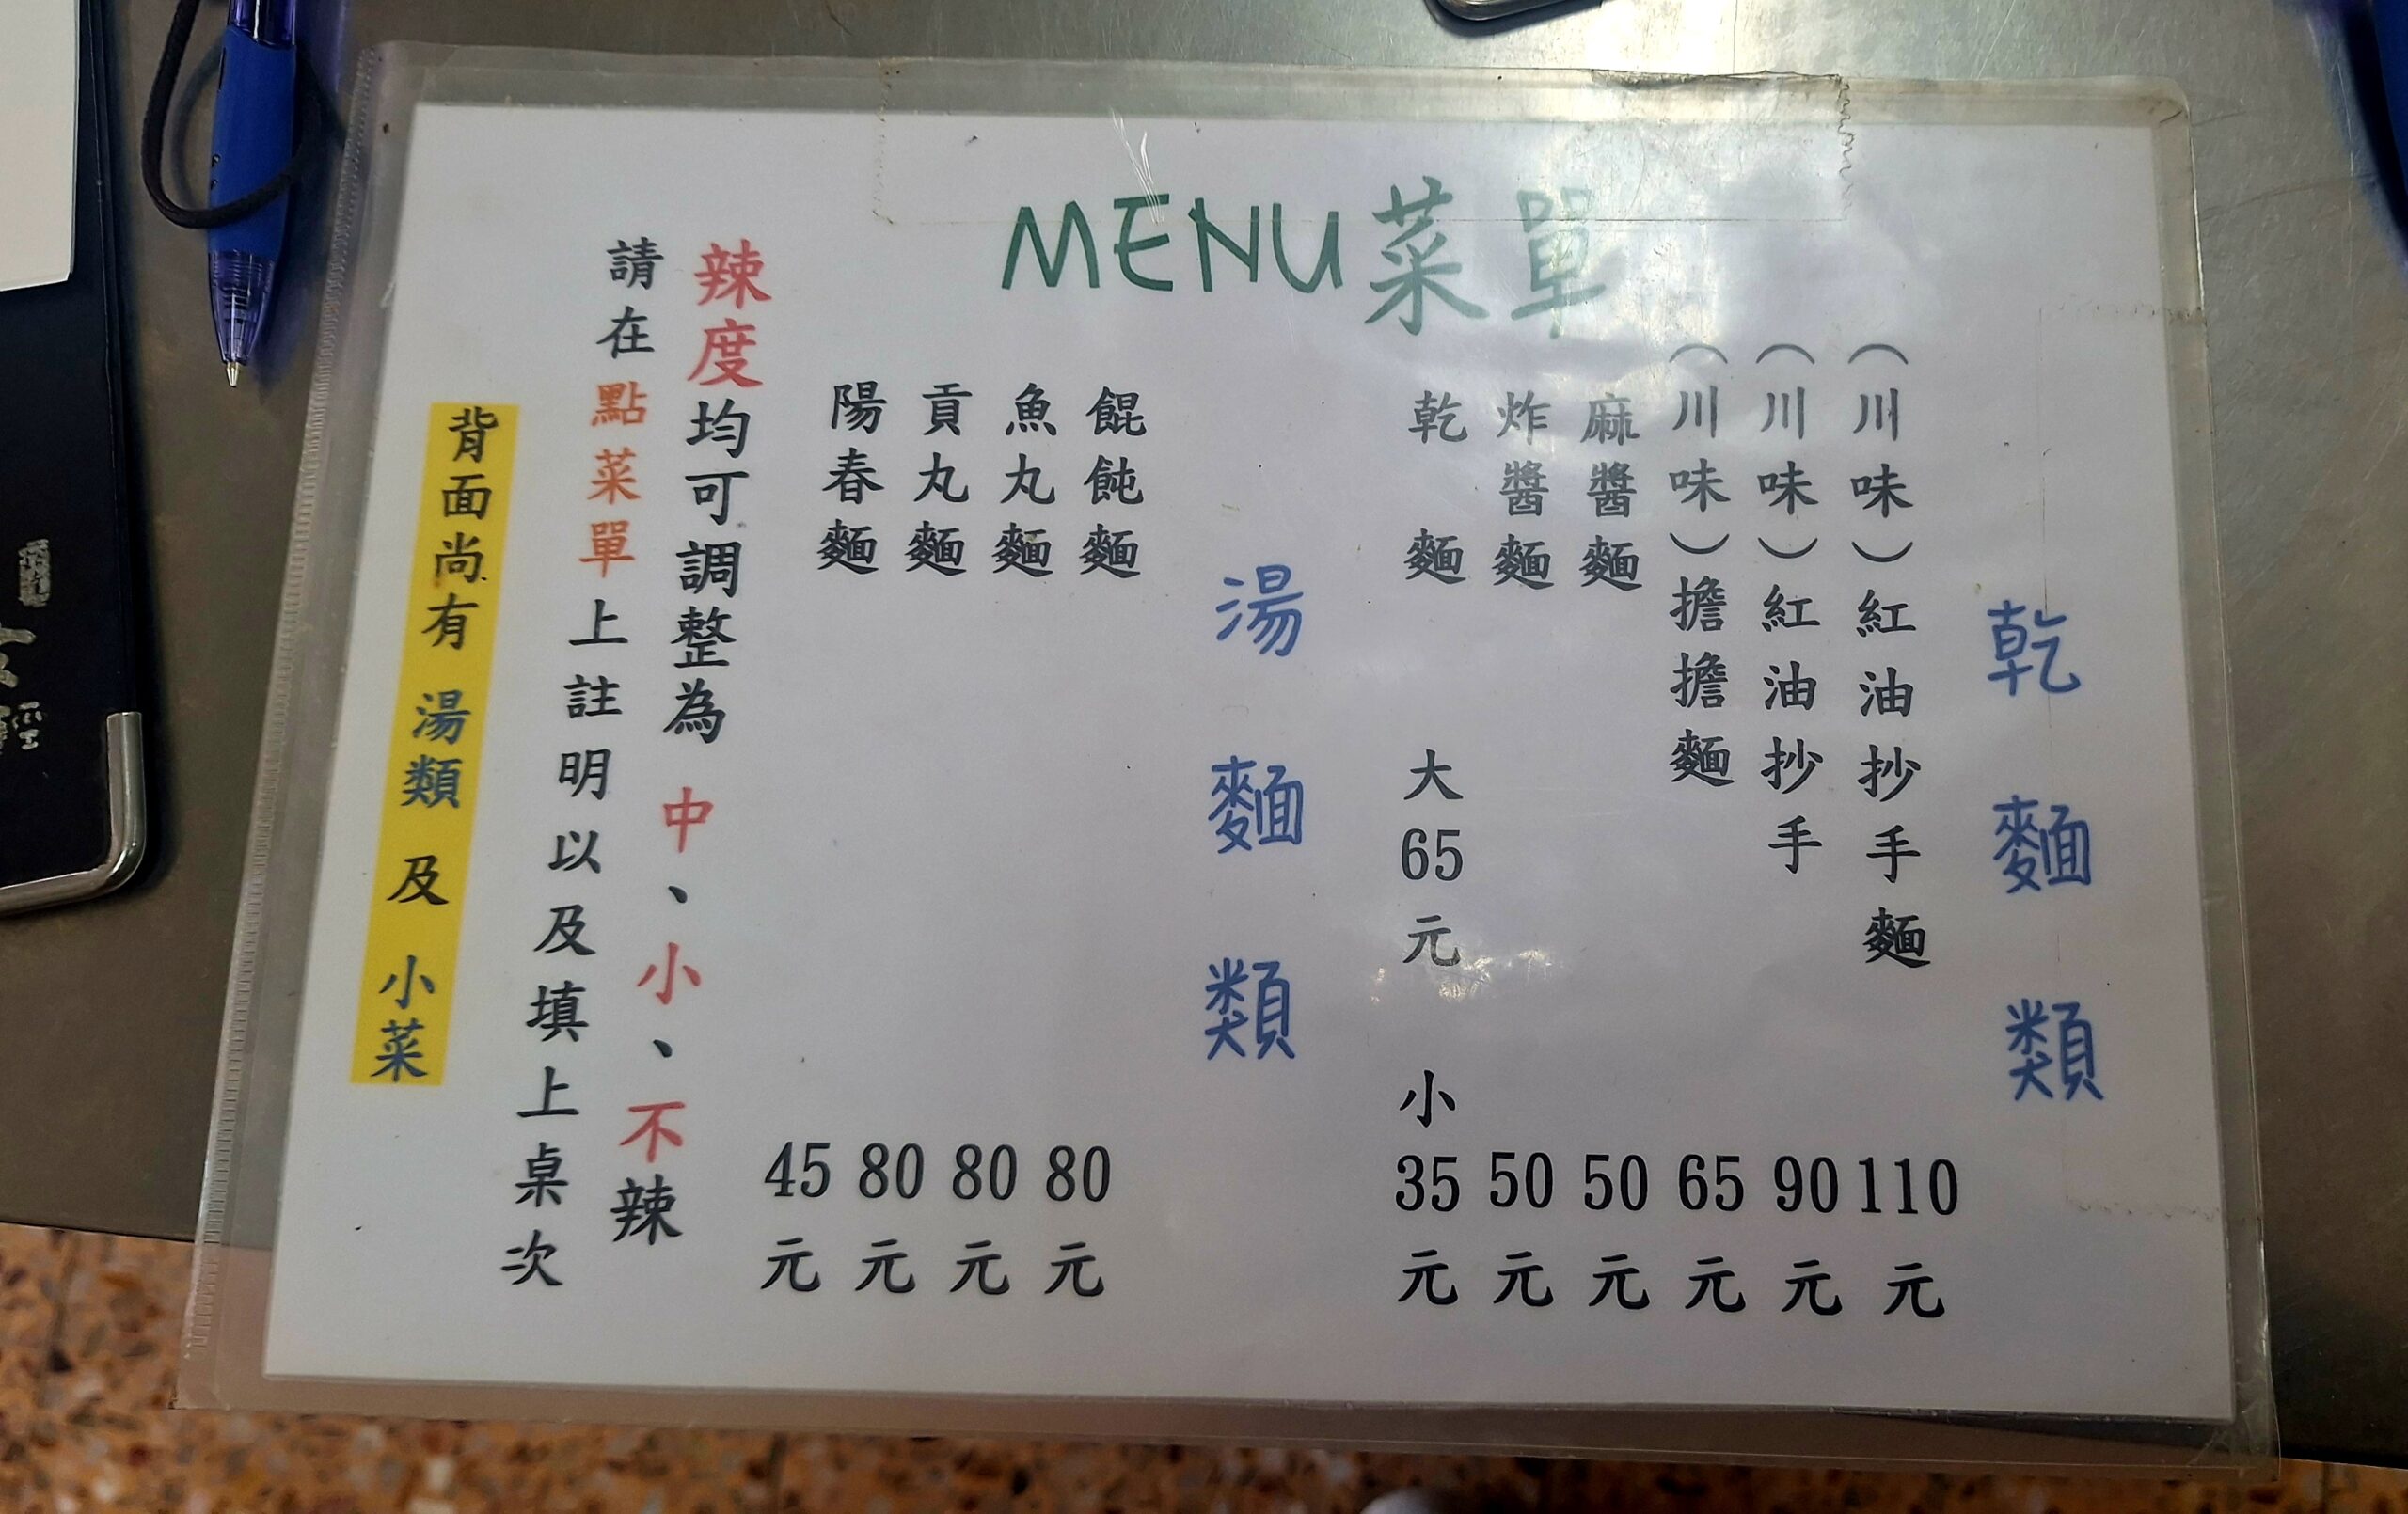 MENU菜單
乾麵類
(川味)紅油抄手麵 110元
(川味)紅油抄手 90元
(川味)擔擔麵 65元
麻醬麵 50元
炸醬麵 50元
乾麵 大65元 小35元
湯麵類
餛飩麵 80元
魚丸麵 80元
貢丸麵 80元
陽春麵 45元
辣度均可調整為 中、小、不辣
請在點菜單上註明以及填上桌次
背面尚有 湯類 及 小菜